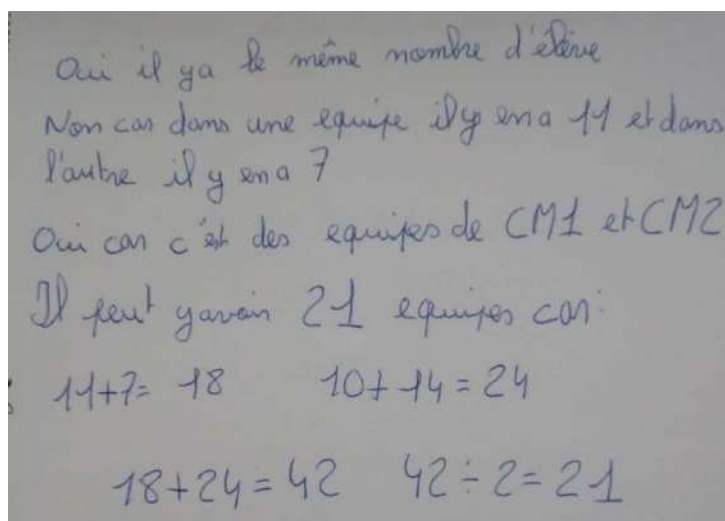 Oui il ya le même nombre d'élève
Non car dans une equipe il y en a 11 et dans
l'autre il y en a 7
Oui car c'est des equipes de CM1 et CM2
Il peut yavoir 21 equipes car:
11+7= 18 10+14=24
18+24=42 42÷2=21